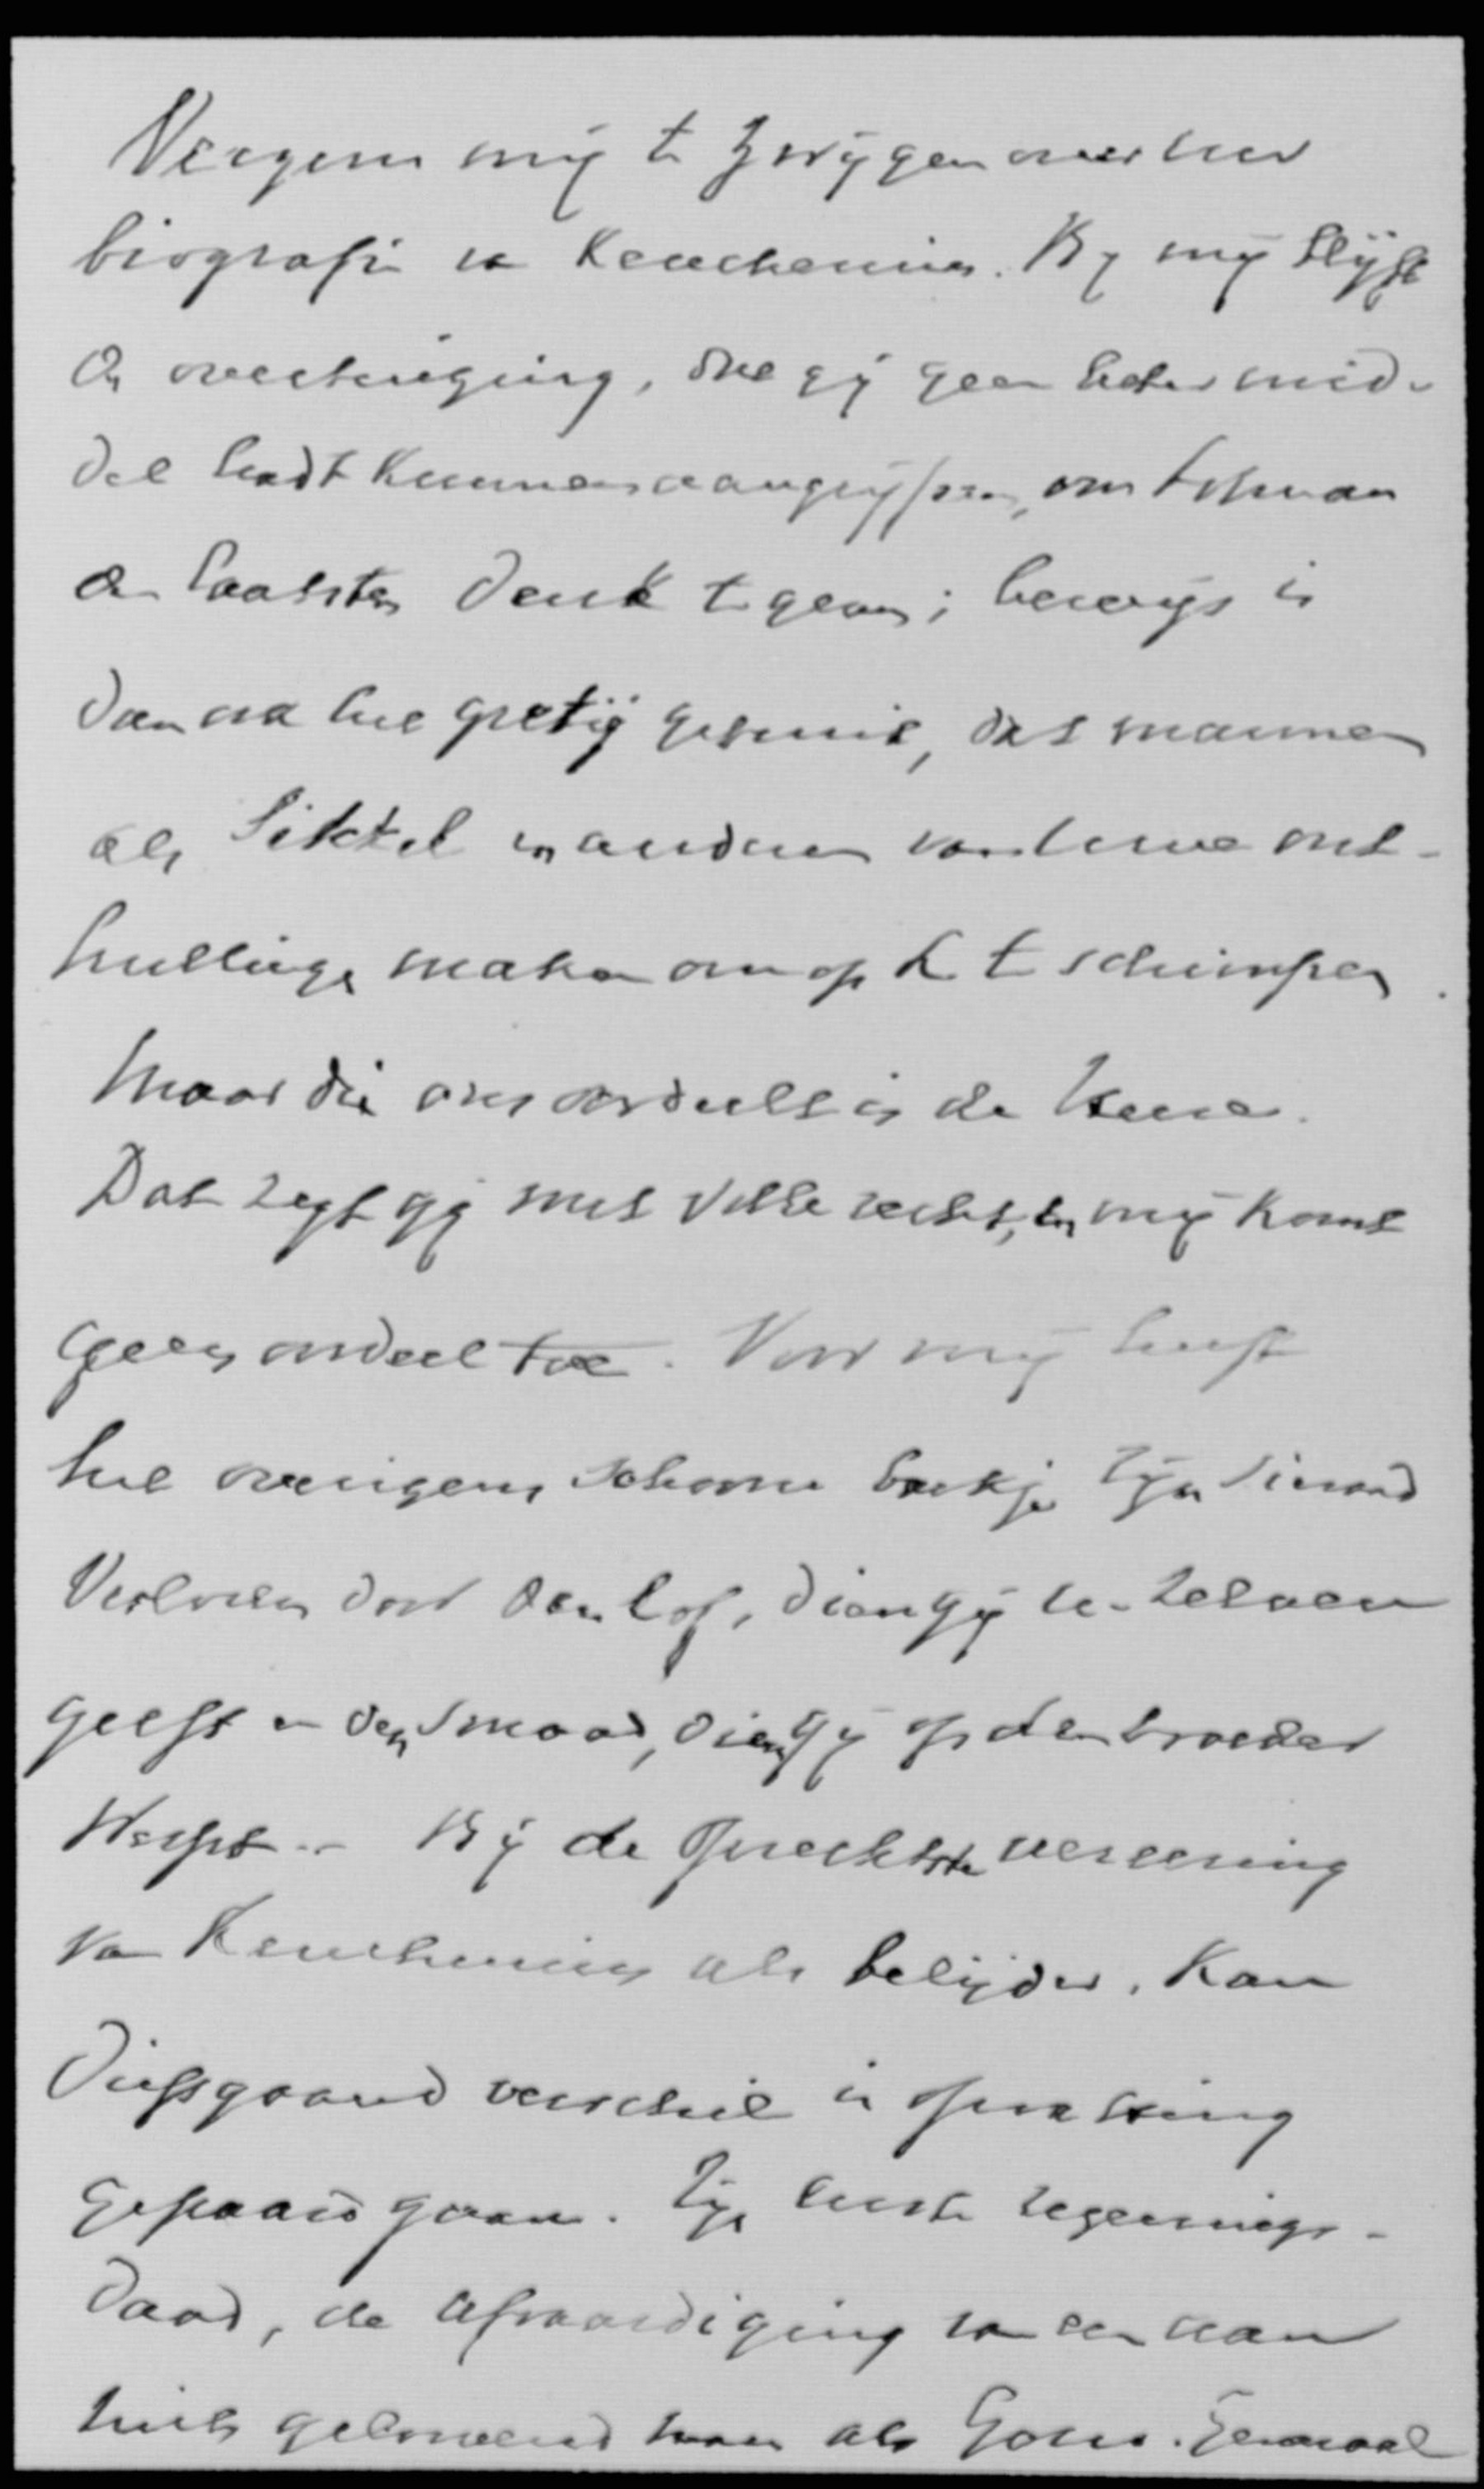 Vergun mij te zwijgen over uw
biografie van Keuchenius. By mij blijft
de overtuiging, dat gij geen beter mid-
del hadt kunnen aangrijpen, om Lohman
den laatsten deuk te geven; bewijs is
dan ook het gretig gebruik, dat mannen
als Sikkel en anderen van deze ont-
hullingen maken om op L te schimpen.
Maar die ons oordeelt is de Heere.
Dat zegt gij met volle recht, en mij komt
geen oordeel toe. Voor mij heeft
het overigens schoone boekje zijn sieraad
verloren door den lof, dien gij u-zelven
geeft en den smaad, dien gij op den broeder
werpt. – Bij de oprechtste vereering
van Keuchenius als belijder, kan
diepgaand verschil in opvatting
gepaard gaan. Zijn eerste regeerings-
daad, de afvaardiging van een aan
niets geloovend man als Gouv. Generaal